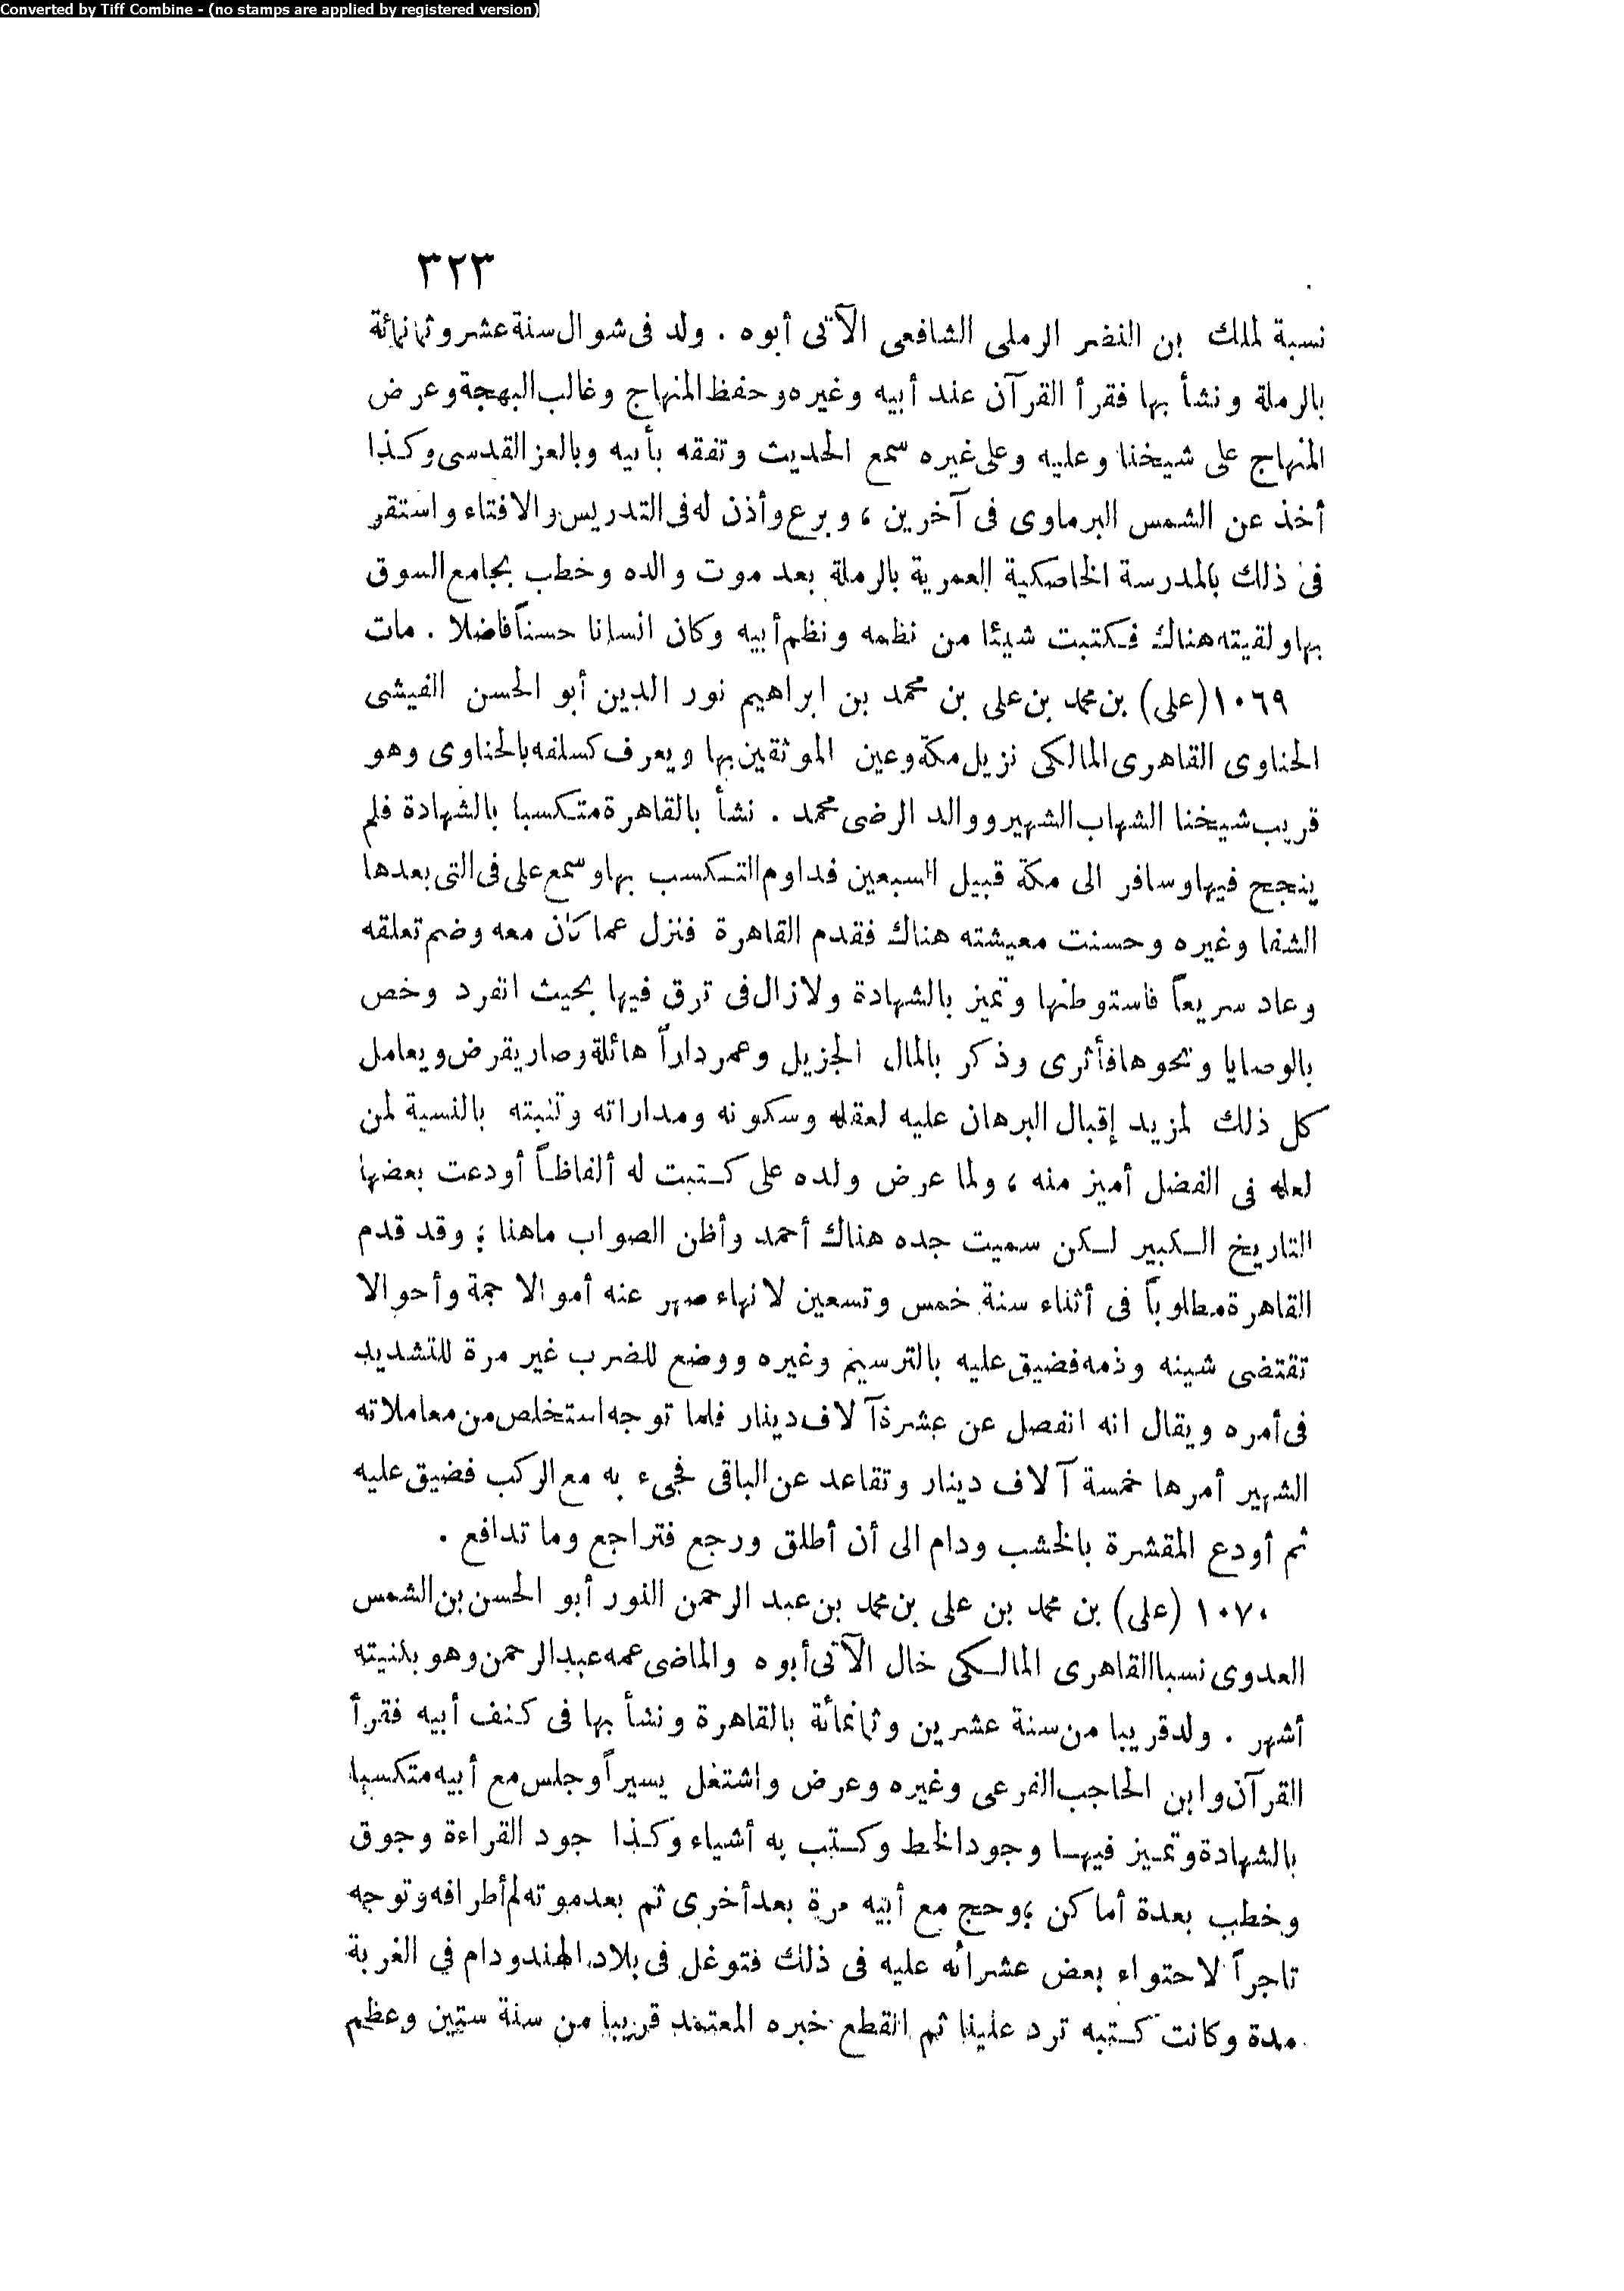 Converted by Tiff Combine - (no stamps are applied by registered version)
٣٢٣
نسبة لملك بن النضر الرملى الشافعى الآتى أبوه . ولد فى شوال سنة عشر وثمانمائة
بالرملة ونشأ بها فقرأ القرآن عند أبيه وغيره وحفظ المنهاج وغالب البهجة وعرض
المنهاج على شيخنا وعليه وعلى غيره سمع الحديث وتفقه بأبيه وبالعز القدسى وكذا
أخذ عن الشمس البرماوى فى آخرين ، وبرع وأذن له فى التدريس والافتاء واستقر
فى ذلك بالمدرسة الخاصكية العمرية بالرملة بعد موت والده وخطب بجامع السوق
بها ولقيته هناك فكتبت شيئا من نظمه ونظم أبيه وكان انسانا حسناً فاضلا . مات
١٠٦٩ (على) بن محمد بن على بن محمد بن ابراهيم نور الدين أبو الحسن الفيشى
الحناوى القاهرى المالكى نزيل مكة وعين الموثقين بها ويعرف كسلفه بالحناوى وهو
قريب شيخنا الشهاب الشهير ووالد الرضى محمد . نشأ بالقاهرة متكسبا بالشهادة فلم
ينجح فيها وسافر الى مكة قبيل السبعين فداوم التكسب بها وسمع على فى التى بعدها
الشفا وغيره وحسنت معيشته هناك فقدم القاهرة فنزل عما كان معه وضم تعلقه
وعاد سريعاً فاستوطنها وتميز بالشهادة ولازال فى ترق فيها بحيث انفرد وخص
بالوصايا ونحوها فأثرى وذكر بالمال الجزيل وعمر داراً هائلة وصار يقرض ويعامل
كل ذلك لمزيد إقبال البرهان عليه لعقله وسكونه ومداراته وتثبته بالنسبة لمن
لعله فى الفضل أميز منه ، ولما عرض ولده على كتبت له ألفاظاً أودعت بعضها
التاريخ الكبير لكن سميت جده هناك أحمد وأظن الصواب ماهنا ؛ وقد قدم
القاهرة مطلوباً فى أثناء سنة خمس وتسعين لانهاء صهر عنه أموالا جمة وأحوالا
تقتضى شينه وذمه فضيق عليه بالترسيم وغيره ووضع للضرب غير مرة للتشديد
فى أمره ويقال انه انفصل عن عشرة آلاف دينار فلما توجه استخلص من معاملاته
الشهير أمرها خمسة آلاف دينار وتقاعد عن الباقى فجىء به مع الركب فضيق عليه
ثم أودع المقشرة بالخشب ودام الى أن أطلق ورجع فتراجع وما تدافع .
١٠٧٠ (على) بن محمد بن على بن محمد بن عبد الرحمن النور أبو الحسن بن الشمس
العدوى نسبا القاهرى المالكى خال الآتى أبوه والماضى عمه عبد الرحمن وهو بكنيته
أشهر . ولد قريبا من سنة عشرين وثمانمائة بالقاهرة ونشأ بها فى كنف أبيه فقرأ
القرآن وابن الحاجب الفرعى وغيره وعرض واشتغل يسيراً وجلس مع أبيه متكسبا
بالشهادة وتميز فيها وجود الخط وكتب به أشياء وكذا جود القراءة وجوق
وخطب بعدة أماكن ؛ وحج مع أبيه مرة بعد أخرى ثم بعد موته لم أطرافه وتوجه
تاجراً لاحتواء بعض عشرائه عليه فى ذلك فتوغل فى بلاد الهند ودام في الغربة
مدة وكانت كتبه ترد علينا ثم انقطع خبره المعتمد قريبا من سنة ستين وعظم